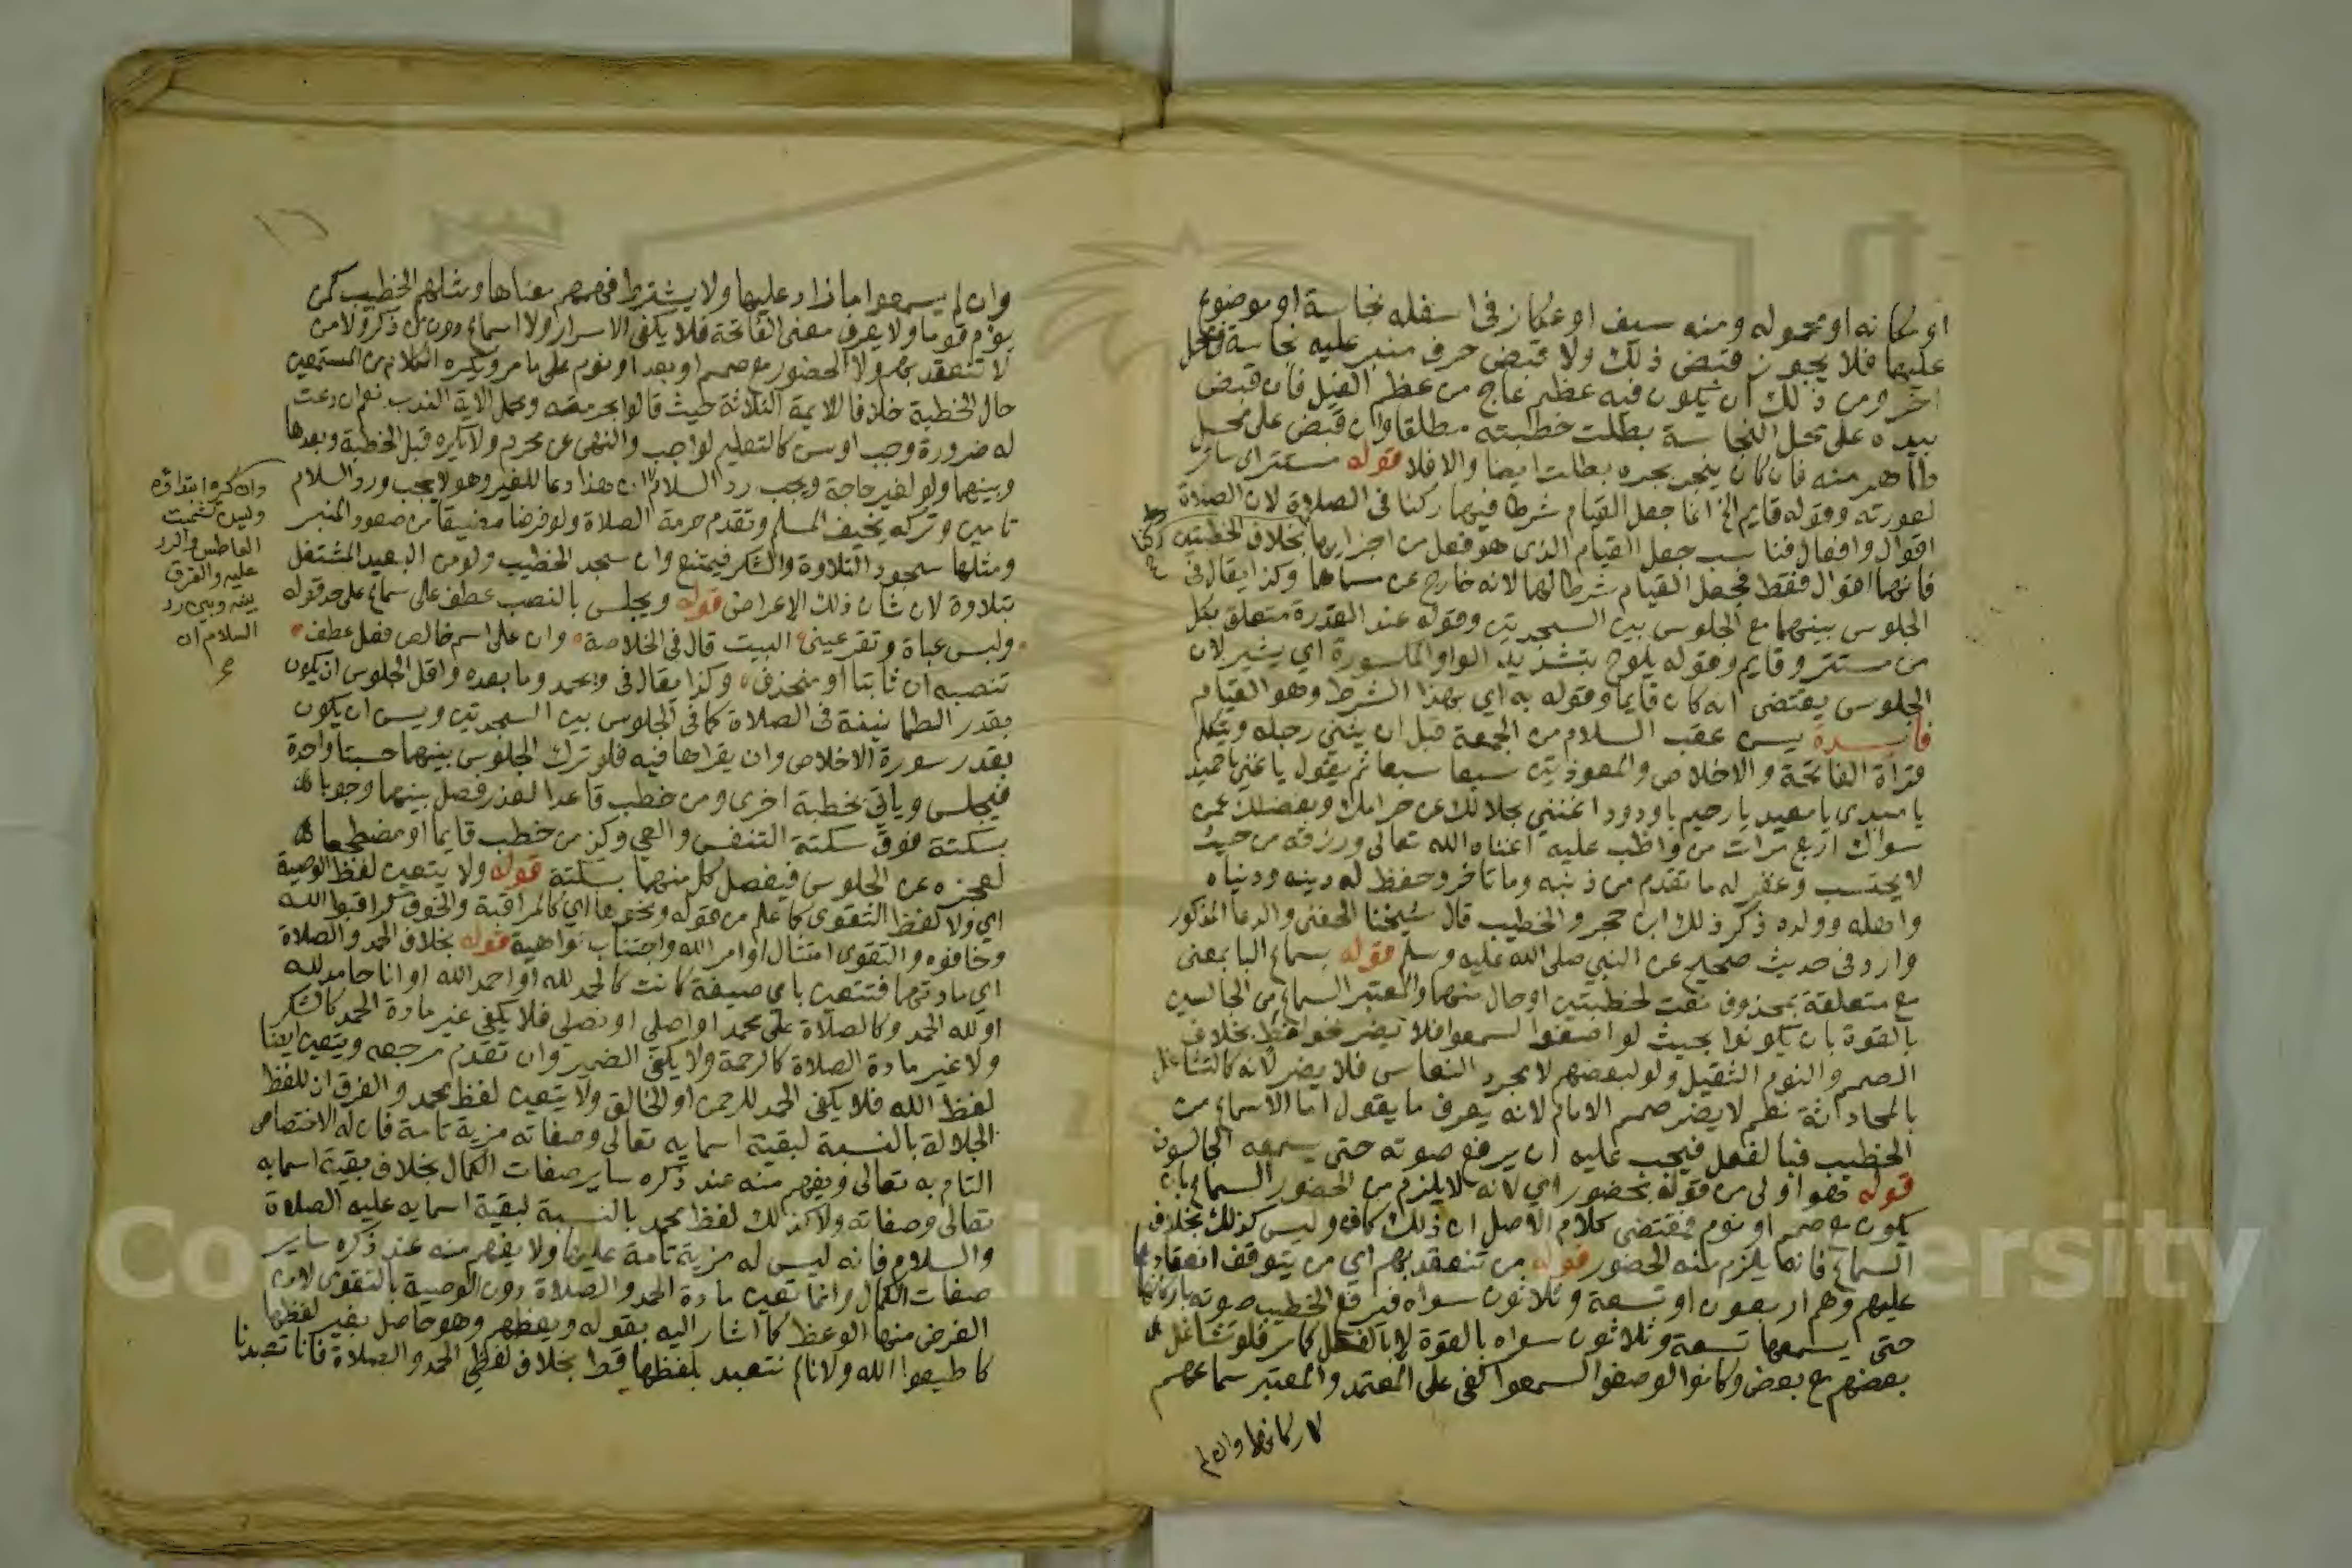 او مكانه او محموله ومنه سيف او عكاز في اسفله نجاسة او موضوع
عليها فلا يجوز قبض ذلك ولا قبض حرف منبر عليه نجاسة في محل
اخر ومن ذلك ان يكون فيه عظم عاج من عظم الفيل فان قبض
بيده على محل النجاسة بطلت خطبته مطلقا وان قبض على محل
طاهر منه فان كان ينجر بجره بطلت ايضا والا فلا قوله مستتر اي ساتر
لعورته وقوله قايم الخ انما جعل القيام شرطا فيهما ركنا في الصلاة لان الصلاة
اقوال وافعال فناسب جعل القيام الذي هو فعل من اجزايها بخلاف الخطبتين
فانهما اقوال فقط فجعل القيام شرطا لهما لانه خارج عن مسماها وكذا يقال في
الجلوس بينهما مع الجلوس بين السجدتين وقوله عند القدرة متعلق بكل
من مستتر وقايم وقوله يلوح بتشديد الواو المكسورة اي يشير لان
الجلوس يقتضي انه كان قايما وقوله به اي بهذا الشرط وهو القيام
فايدة يسن عقب السلام من الجمعة قبل ان يثني رجله ويتكلم
قراة الفاتحة والاخلاص والمعوذتين سبعا سبعا ثم يقول يا غني يا حميد
يا مبدي يا معيد يا رحيم يا ودود اغنني بحلالك عن حرامك وبفضلك عمن
سواك اربع مرات من واظب عليه اغناه الله تعالى ورزقه من حيث
لا يحتسب وغفر له ما تقدم من ذنبه وما تاخر وحفظ له دينه ودنياه
واهله وولده ذكر ذلك ابن حجر والخطيب قال شيخنا الحفني والدعا المذكور
وارد في حديث صحيح عن النبي صلى الله عليه وسلم قوله بسماع البا بمعنى
مع متعلقة بمحذوف نعت لخطبتين او حال منهما والمعتبر السماع من الجالسين
بالقوة بان يكونوا بحيث لو اصغوا لسمعوا فلا يضر نحو لغط بخلاف
الصمم والنوم الثقيل ولو لبعضهم لا مجرد النعاس فلا يضر لانه كالتشاغل
بالمحادثة نعم لا يضر صمم الامام لانه يعرف ما يقول اما الاسماع من
الخطيب فبالفعل فيجب عليه ان يرفع صوته حتى يسمعه الجالسون
قوله فهو اولى من قوله بحضور اي لانه لا يلزم من الحضور السماع بان
يكون مع صمم او نوم فمقتضى كلام الاصل ان ذلك كاف وليس كذلك بخلاف
السماع فانه يلزم منه الحضور قوله من تنعقد بهم اي من يتوقف انعقادها
عليهم وهم اربعون او تسعة وثلاثون سواه فيرفع الخطيب صوته باركانها
حتى يسمعها تسعة وثلاثون سواه بالقوة لا بالفعل كما مر فلو تشاغل
بعضهم مع بعض وكانوا لو صغوا لسمعوا كفى على المعتمد والمعتبر سماعهم
لاركانها وان لم
وان لم يسمعوا ما زاد عليها ولا يشترط فهمهم معناها ومثلهم الخطيب كمن
يؤم قوما ولا يعرف معنى الفاتحة فلا يكفي الاسرار ولا اسماع دون من ذكر ولا من
لا تنعقد بهم ولا الحضور مع صمم او بعد او نوم على ما مر ويكره الكلام من المستمعين
حال الخطبة خلافا للايمة الثلاثة حيث قالوا بحرمته وحمل الاية الندب نعم ان دعت
له ضرورة وجب او سن كالتعليم لواجب والنهي عن محرم ولا يكره قبل الخطبة وبعدها
وبينهما ولو لغير حاجة ويجب رد السلام لان هذا دعا للغير وهو لا يجب ورد السلام
تامين وتركه يخيف المسلم وتقدم حرمة الصلاة ولو فرضا مضيقا من صعود المنبر
ومثلها سجود التلاوة والشكر فيمتنع وان سجد الخطيب ولو من البعيد المشتغل
بتلاوة لان شان ذلك الاعراض قوله ويجلس بالنصب عطف على سماع على حد قوله
ولبس عباة وتقر عيني البيت قال في الخلاصة وان على اسم خالص فعل عطف
تنصبه ان ثابتا او منحذف وكذا يقال في وبحمد وما بعده واقل الجلوس ان يكون
بقدر الطمانينة في الصلاة كما في الجلوس بين السجدتين ويسن ان يكون
بقدر سورة الاخلاص وان يقراها فيه فلو ترك الجلوس بينهما حسبتا واحدة
فيجلس وياتي بخطبة اخرى ومن خطب قاعدا لعذر فصل بينهما وجوبا
بسكتة فوق سكتة التنفس والعي وكذا من خطب قايما او مضطجعا
لعجزه عن الجلوس فيفصل كل منهما بسكتة قوله ولا يتعين لفظ الوصية
اي ولا لفظ التقوى كما علم من قوله ونحوها اي كالمراقبة والخوف كراقبوا الله
وخافوه والتقوى امتثال اوامر الله واجتناب نواهيه قوله بخلاف الحمد والصلاة
اي مادتهما فتتعين باي صيغة كانت كالحمد لله او احمد الله او انا حامد لله
او لله الحمد وكالصلاة على محمد او اصلي او نصلي فلا يكفي غير مادة الحمد كالشكر
ولا غير مادة الصلاة كالرحمة ولا يكفي الضمير وان تقدم مرجعه ويتعين ايضا
لفظ الله فلا يكفي الحمد للرحمن او الخالق ولا يتعين لفظ محمد والفرق ان للفظ
الجلالة بالنسبة لبقية اسمايه تعالى وصفاته مزية تامة فان له الاختصاص
التام به تعالى ويفهم منه عند ذكره ساير صفات الكمال بخلاف بقية اسمايه
تعالى وصفاته ولا كذلك لفظ محمد بالنسبة لبقية اسمايه عليه الصلاة
والسلام فانه ليس له مزية تامة عليها ولا يفهم منه عند ذكره ساير
صفات الكمال وانما تعين مادة الحمد والصلاة دون الوصية بالتقوى لان
الغرض منها الوعظ كما اشار اليه بقوله ويعظهم وهو حاصل بغير لفظها
كاطيعوا الله ولانا لم نتعبد بلفظها قط بخلاف لفظي الحمد والصلاة فانا تعبدنا
وان كره ابتداؤه
وليس كتشميت
العاطس والرد
عليه والفرق
بينه وبين رد
السلام ان
Co in ersity